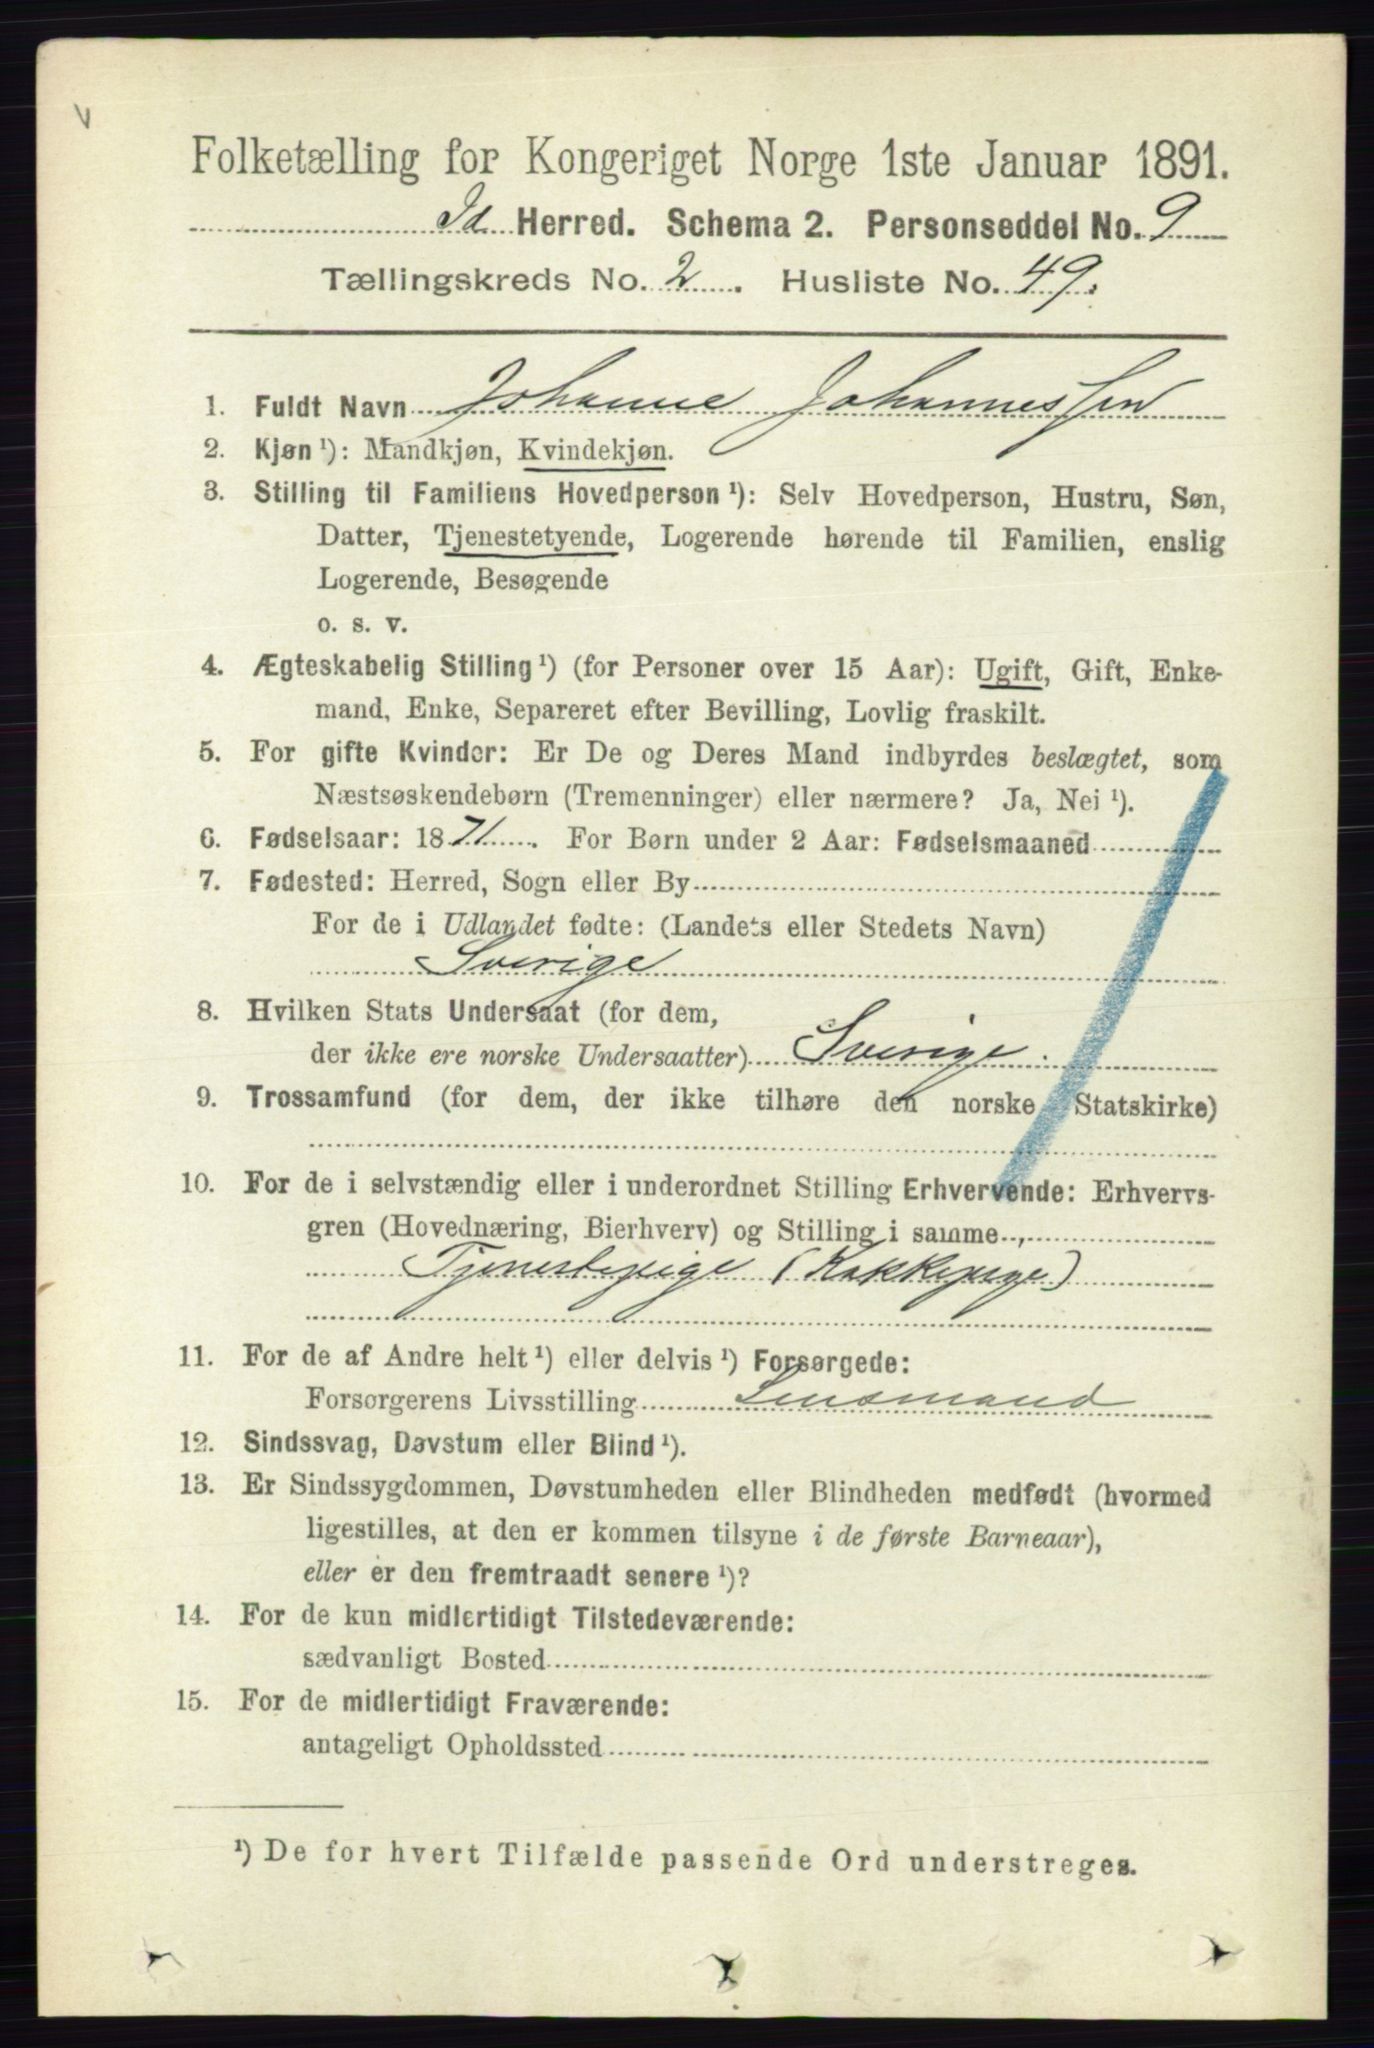 V
Folketælling for Kongeriget Norge 1ste Januar 1891.
Id Herred. Schema 2. Personseddel No. 9
Tællingskreds No. 2. Husliste No. 49.
1. Fuldt Navn Johanne Johannessen
2. Kjøn ¹): Mandkjøn, Kvindekjøn.
3. Stilling til Familiens Hovedperson ¹): Selv Hovedperson, Hustru, Søn,
Datter, Tjenestetyende, Logerende hørende til Familien, enslig
Logerende, Besøgende
o. s. v.
4. Ægteskabelig Stilling ¹) (for Personer over 15 Aar): Ugift, Gift, Enke-
mand, Enke, Separeret efter Bevilling, Lovlig fraskilt.
5. For gifte Kvinder: Er De og Deres Mand indbyrdes beslægtet, som
Næstsøskendebørn (Tremenninger) eller nærmere? Ja, Nei ¹).
6. Fødselsaar: 1871. For Børn under 2 Aar: Fødselsmaaned
7. Fødested: Herred, Sogn eller By
For de i Udlandet fødte: (Landets eller Stedets Navn)
Sverige
8. Hvilken Stats Undersaat (for dem,
der ikke ere norske Undersaatter) Sverige.
9. Trossamfund (for dem, der ikke tilhøre den norske Statskirke)
10. For de i selvstændig eller i underordnet Stilling Erhvervende: Erhvervs-
gren (Hovednæring, Bierhverv) og Stilling i samme
Tjenestepige (Kokkepige)
11. For de af Andre helt ¹) eller delvis ¹) Forsørgede:
Forsørgerens Livsstilling Lensmand
12. Sindssvag, Døvstum eller Blind ¹).
13. Er Sindssygdommen, Døvstumheden eller Blindheden medfødt (hvormed
ligestilles, at den er kommen tilsyne i de første Barneaar),
eller er den fremtraadt senere ¹)?
14. For de kun midlertidigt Tilstedeværende:
sædvanligt Bosted
15. For de midlertidigt Fraværende:
antageligt Opholdssted
¹) De for hvert Tilfælde passende Ord understreges.